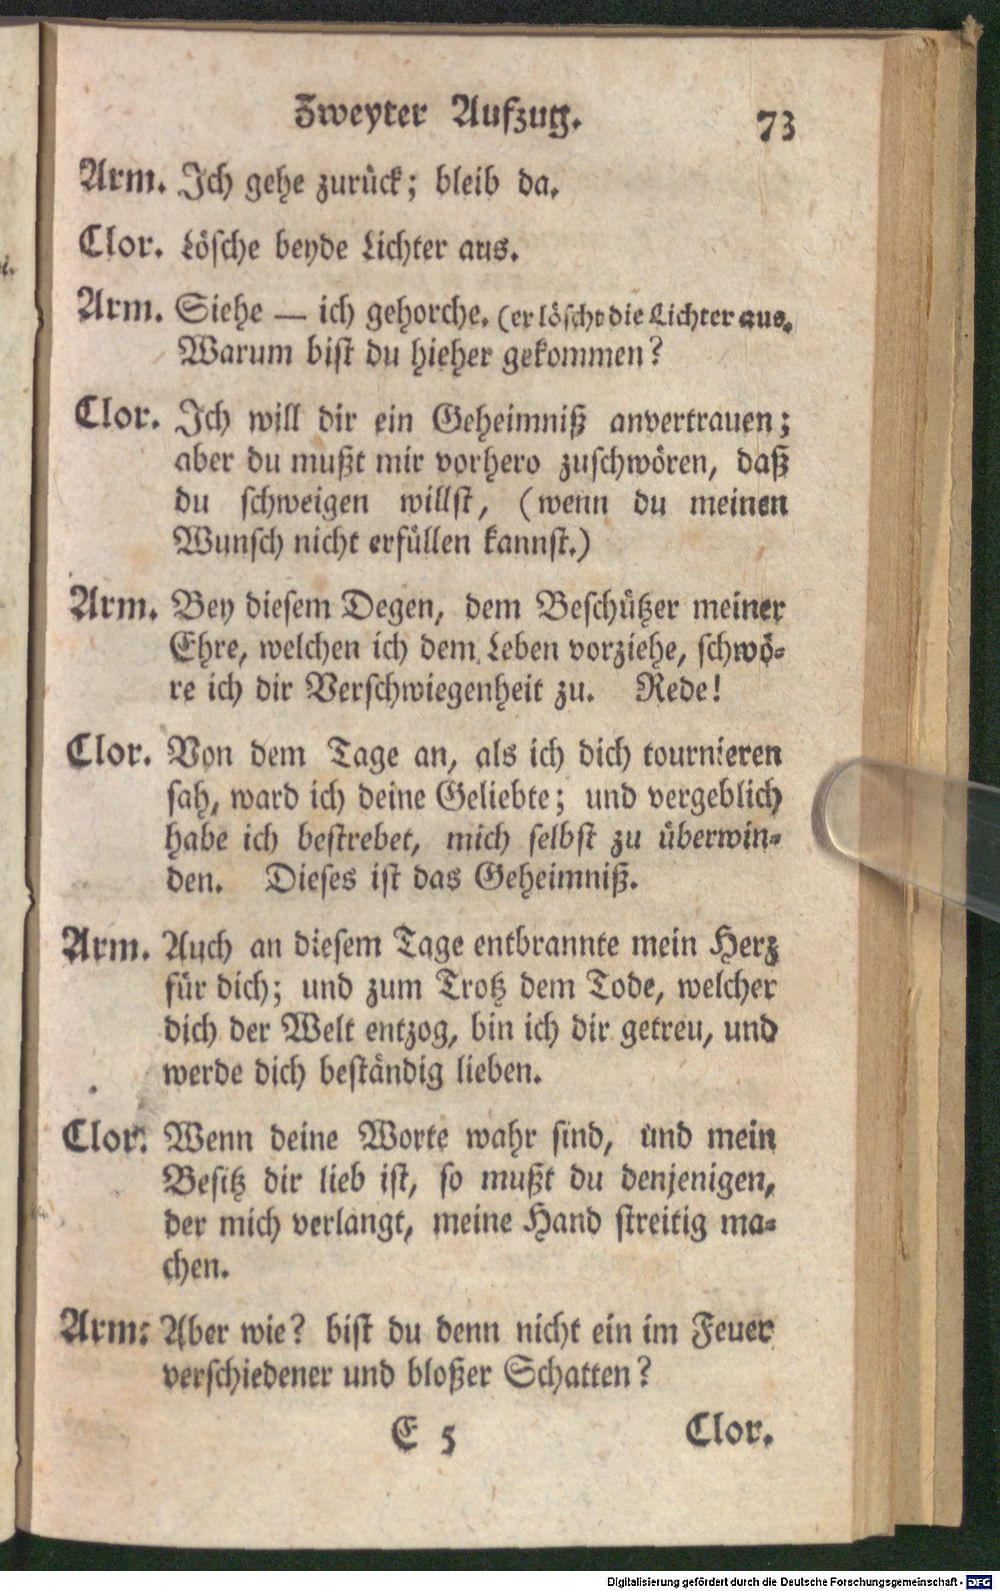 Zweyter Aufzug. 73
Arm. Ich gehe zurück; bleib da.
Clor. Lösche beyde Lichter aus.
Arm. Siehe — ich gehorche. (er löscht die Lichter aus.
Warum bist du hieher gekommen?
Clor. Ich will dir ein Geheimniß anvertrauen;
aber du mußt mir vorhero zuschwören, daß
du schweigen willst, (wenn du meinen
Wunsch nicht erfüllen kannst.)
Arm. Bey diesem Degen, dem Beschützer meiner
Ehre, welchen ich dem Leben vorziehe, schwö-
re ich dir Verschwiegenheit zu. Rede!
Clor. Von dem Tage an, als ich dich tournieren
sah, ward ich deine Geliebte; und vergeblich
habe ich bestrebet, mich selbst zu überwin-
den. Dieses ist das Geheimniß.
Arm. Auch an diesem Tage entbrannte mein Herz
für dich; und zum Trotz dem Tode, welcher
dich der Welt entzog, bin ich dir getreu, und
werde dich beständig lieben.
Clor. Wenn deine Worte wahr sind, und mein
Besitz dir lieb ist, so mußt du denjenigen,
der mich verlangt, meine Hand streitig ma-
chen.
Arm. Aber wie? bist du denn nicht ein im Feuer
verschiedener und bloßer Schatten?
E 5 Clor.
Digitalisierung gefördert durch die Deutsche Forschungsgemeinschaft - DFG